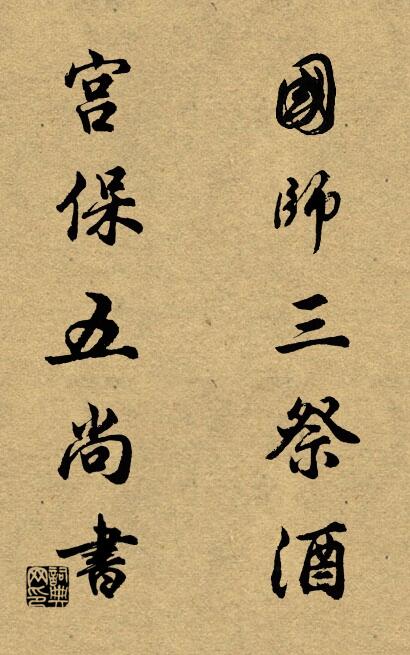 國師三祭酒
宫保五尚書
詞典网印